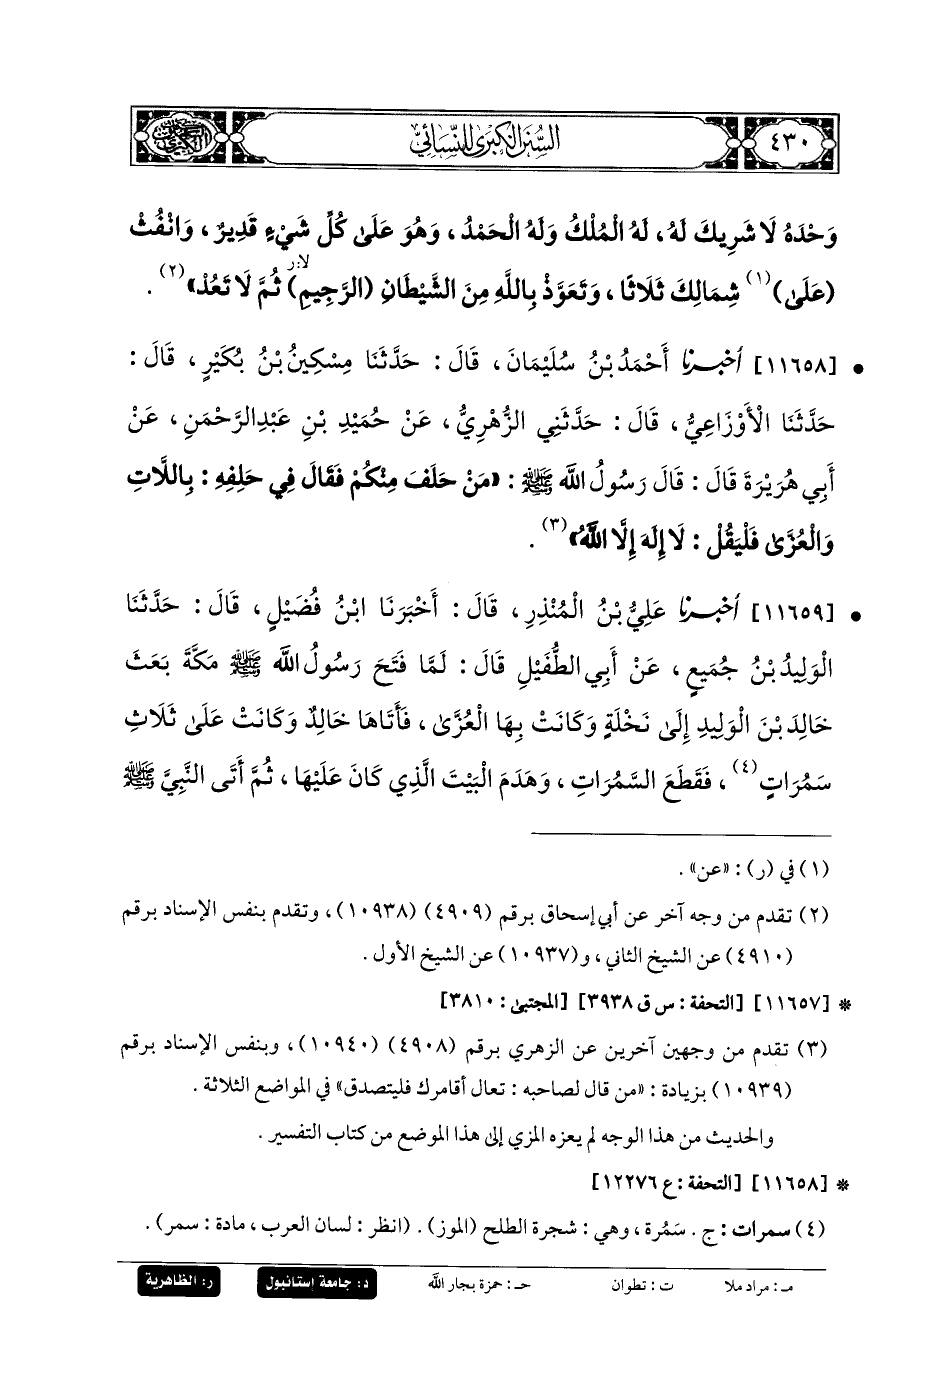 ٤٣٠
السنن الكبرى للنسائي
وَحْدَهُ لَا شَرِيكَ لَهُ، لَهُ الْمُلْكُ وَلَهُ الْحَمْدُ، وَهُوَ عَلَىٰ كُلِّ شَيْءٍ قَدِيرٌ، وَانْفُثْ
(عَلَىٰ)(١) شِمَالِكَ ثَلَاثًا، وَتَعَوَّذْ بِاللَّهِ مِنَ الشَّيْطَانِ (الرَّجِيمِ) ثُمَّ لَا تَعُدْ»(٢).
• [١١٦٥٨] أخبرنا أَحْمَدُ بْنُ سُلَيْمَانَ، قَالَ: حَدَّثَنَا مِسْكِينُ بْنُ بُكَيْرٍ، قَالَ:
حَدَّثَنَا الْأَوْزَاعِيُّ، قَالَ: حَدَّثَنِي الزُّهْرِيُّ، عَنْ حُمَيْدِ بْنِ عَبْدِالرَّحْمَنِ، عَنْ
أَبِي هُرَيْرَةَ قَالَ: قَالَ رَسُولُ اللَّه ﷺ: «مَنْ حَلَفَ مِنْكُمْ فَقَالَ فِي حَلِفِهِ: بِاللَّاتِ
وَالْعُزَّىٰ فَلْيَقُلْ: لَا إِلَهَ إِلَّا اللَّهُ»(٣).
• [١١٦٥٩] أخبرنا عَلِيُّ بْنُ الْمُنْذِرِ، قَالَ: أَخْبَرَنَا ابْنُ فُضَيْلٍ، قَالَ: حَدَّثَنَا
الْوَلِيدُ بْنُ جُمَيعٍ، عَنْ أَبِي الطُّفَيْلِ قَالَ: لَمَّا فَتَحَ رَسُولُ اللَّه ﷺ مَكَّةَ بَعَثَ
خَالِدَ بْنَ الْوَلِيدِ إِلَىٰ نَخْلَةٍ وَكَانَتْ بِهَا الْعُزَّىٰ، فَأَتَاهَا خَالِدٌ وَكَانَتْ عَلَىٰ ثَلَاثِ
سَمُرَاتٍ(٤)، فَقَطَعَ السَّمُرَاتِ، وَهَدَمَ الْبَيْتَ الَّذِي كَانَ عَلَيْهَا، ثُمَّ أَتَى النَّبِيَّ ﷺ
(١) في (ر): «عن».
(٢) تقدم من وجه آخر عن أبي إسحاق برقم (٤٩٠٩) (١٠٩٣٨)، وتقدم بنفس الإسناد برقم
(٤٩١٠) عن الشيخ الثاني، و(١٠٩٣٧) عن الشيخ الأول.
* [١١٦٥٧] [التحفة: س ق ٣٩٣٨] [المجتبى: ٣٨١٠]
(٣) تقدم من وجهين آخرين عن الزهري برقم (٤٩٠٨) (١٠٩٤٠)، وبنفس الإسناد برقم
(١٠٩٣٩) بزيادة: «من قال لصاحبه: تعال أقامرك فليتصدق» في المواضع الثلاثة.
والحديث من هذا الوجه لم يعزه المزي إلى هذا الموضع من كتاب التفسير.
* [١١٦٥٨] [التحفة: ع ١٢٢٧٦]
(٤) سمرات: ج. سَمُرة، وهي: شجرة الطلح (الموز). (انظر: لسان العرب، مادة: سمر).
مـ: مراد ملا ت: تطوان حـ: حمزة بجار الله د: جامعة إستانبول ر: الظاهرية